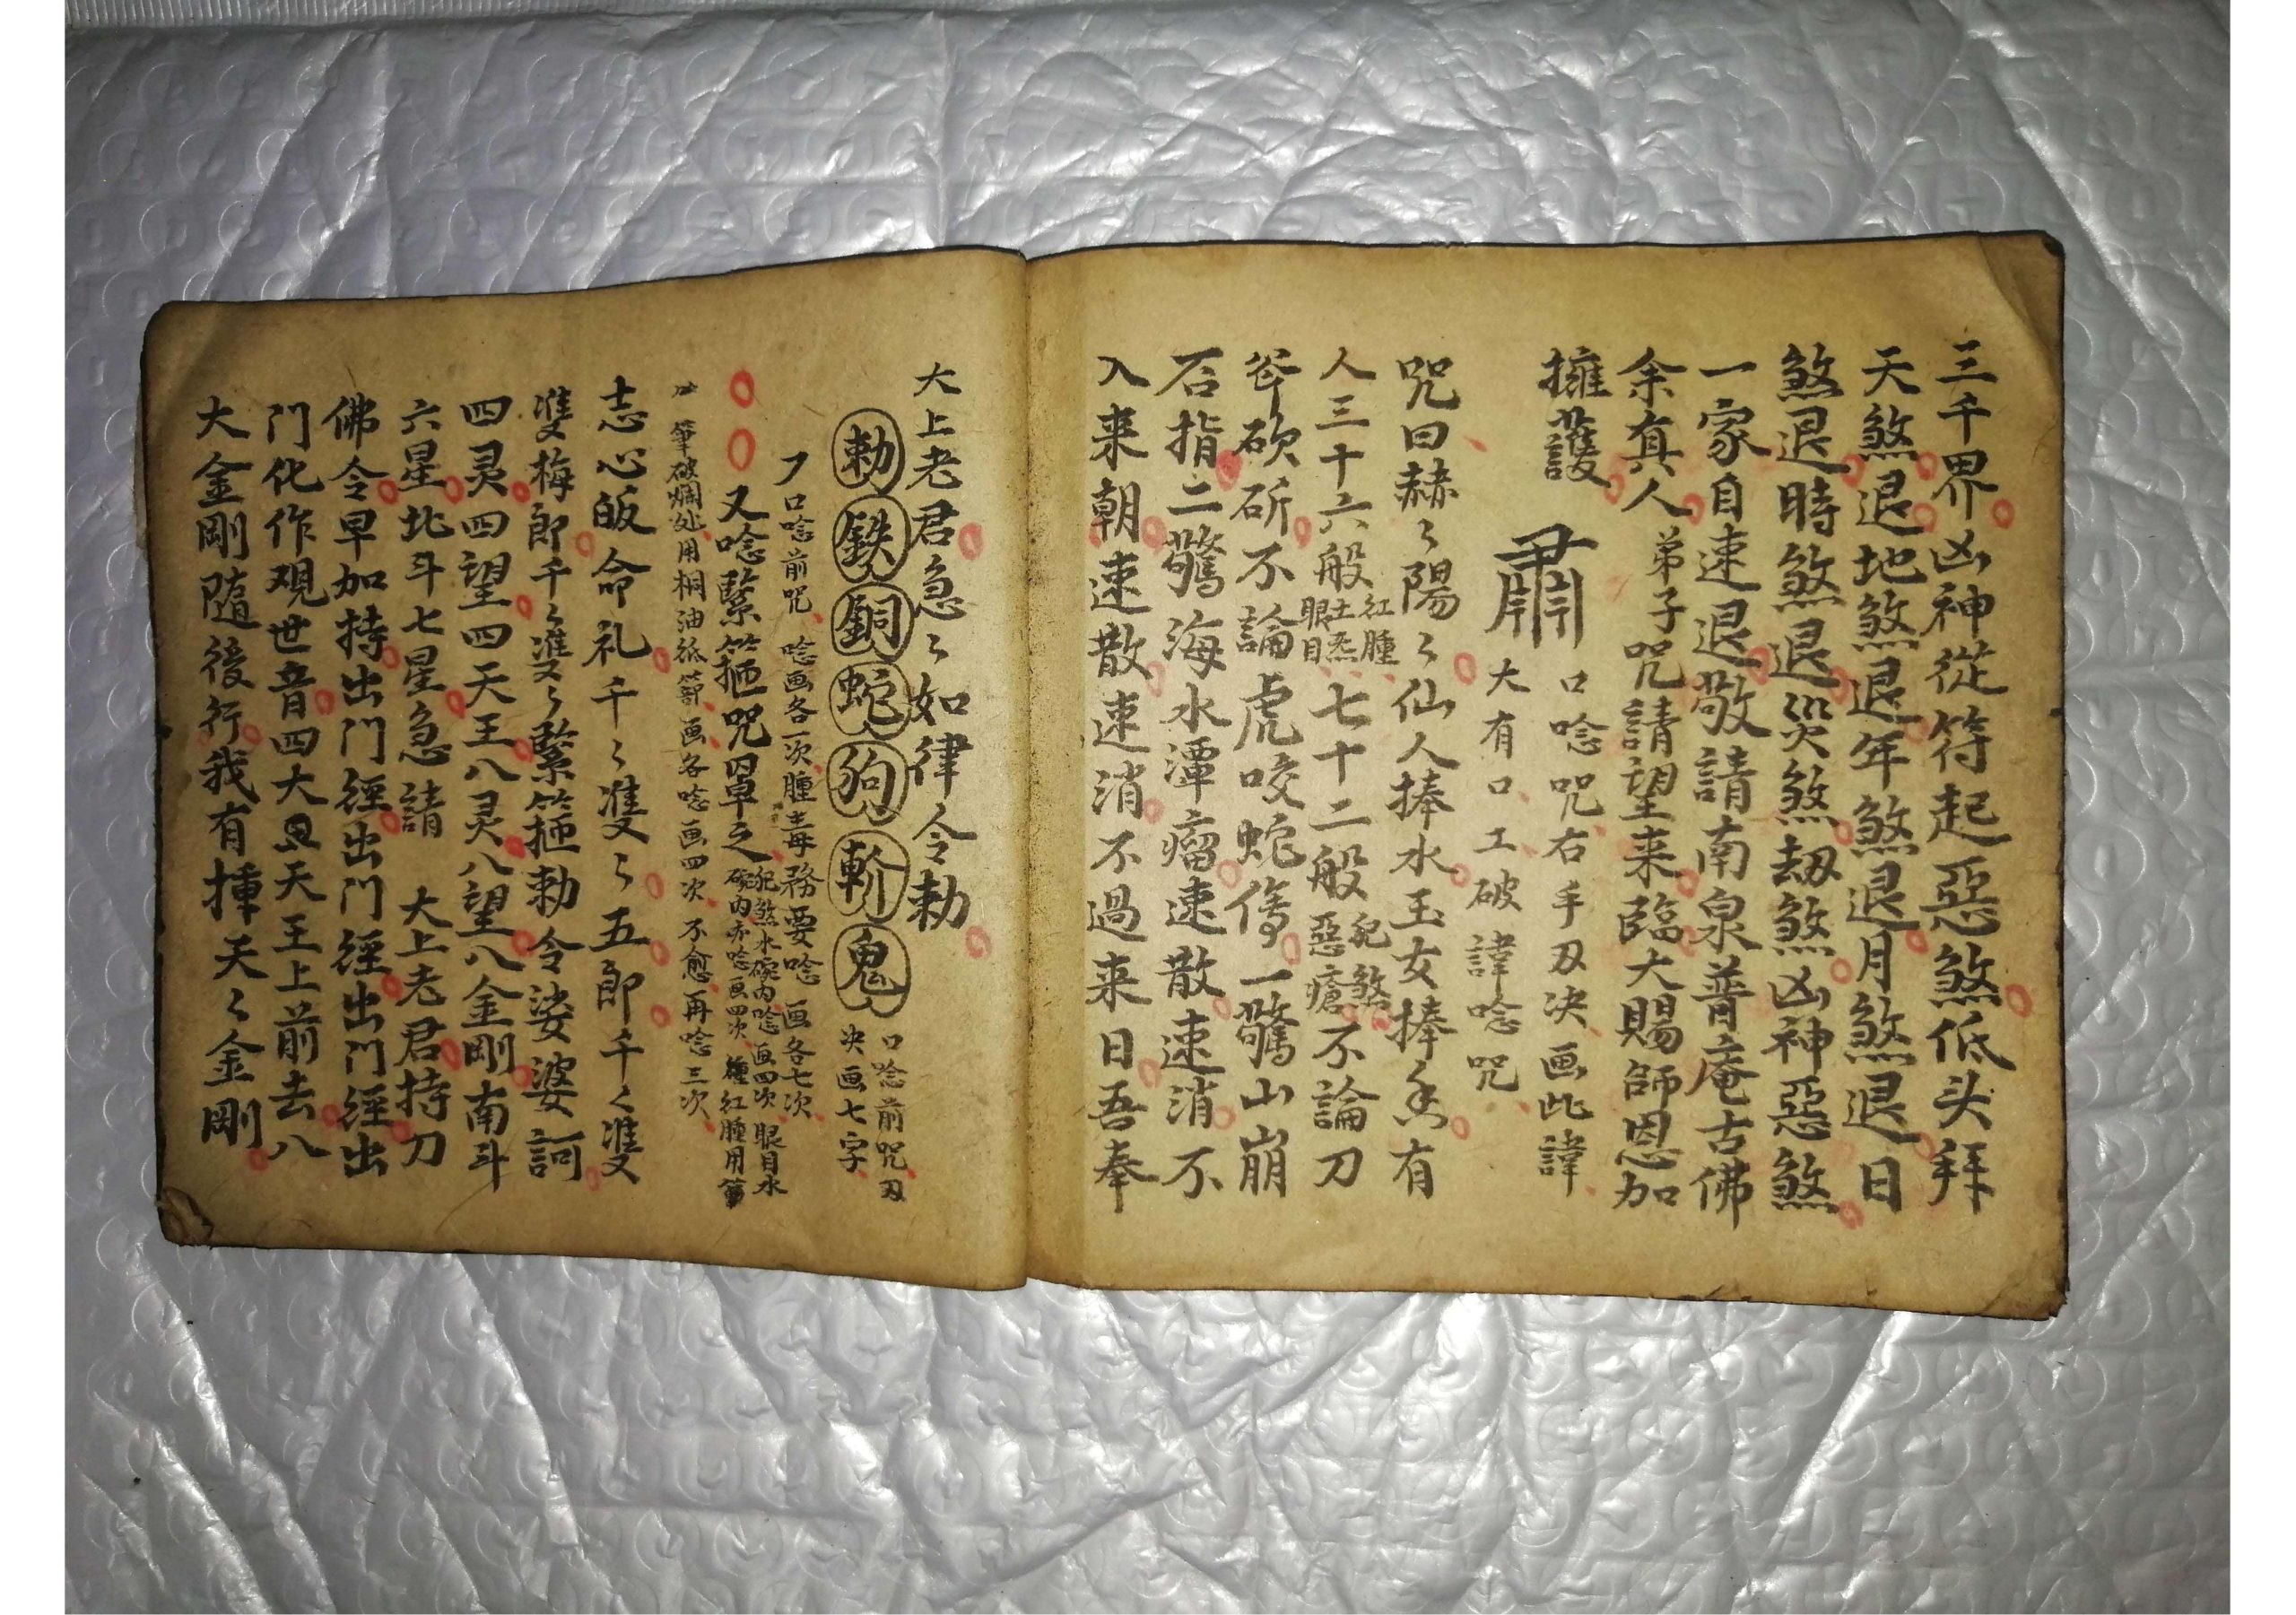 三千界凶神從符起惡煞低头拜
天煞退地煞退年煞退月煞退日
煞退時煞退災煞劫煞凶神惡煞
一家自速退敬請南泉普庵古佛
余真人弟子咒請望来臨大賜師恩加
擁護
口唸咒右手刃决画此諱
大有口工破諱唸咒
咒曰赫〻陽〻仙人捧水玉女捧香有
人三十六般紅腫土炁眼目七十二般犯煞惡瘡不論刀
斧砍斫不論虎咬蛇傷一驚山崩
石指二驚海水潭瘤速散速消不
入来朝速散速消不過来日吾奉
大上老君急〻如律令勅
勅鉄銅蛇狗斬鬼
口唸前咒刃
决画七字
口唸前咒唸画各一次腫毒務要唸画各七次
又唸緊箍咒罩之
犯煞水碗内唸画四次眼目水
碗内亦唸画四次種紅腫用筆
筆破爛处用桐油紙等画各唸画四次不愈再唸三次
志心皈命礼千〻㨿〻五郎千〻㨿
㨿梅郎千〻㨿〻緊箍勅令娑婆訶
四灵四望四天王八灵八望八金剛南斗
六星北斗七星急請大上老君持刀
佛令早加持出門經出門經出門經出
门化作观世音四大天王上前去八
大金剛隨後行我有揷天〻金剛